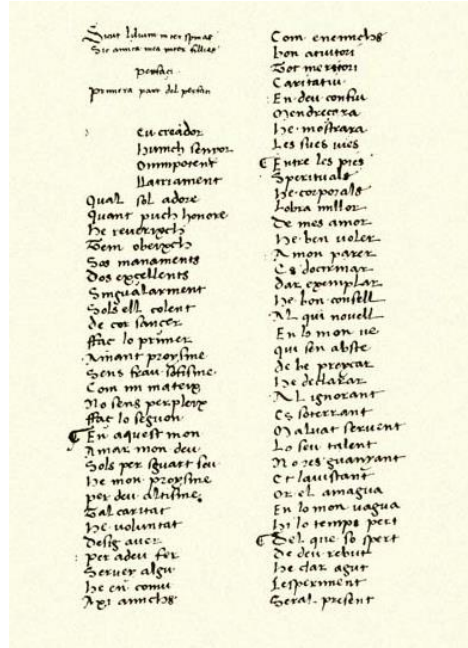 Sicut lilium inter spinas
Sic amica mea inter fillias
perfaci
Primera part del perfaci
creador
senyor
Omnipotent
Qual sol adore
Quant puch honore
He reverexch
Tem obeexch
Sos manaments
Dos excellents
Singularment
Sols ell colent
de cor sancer
ffac lo primer
Amant proysme
Sens frau sofisme
Com mi mateix
No sens perpleix
ffac lo segon
En aquest mon
Amar mon deu
Sols per sguart seu
he mon proysme
per deu altisme
Tal caritat
he voluntat
Desig aver
per adeu fer
Servey algu
he en comu
Axi amichs
Com enemichs
bon
Tot meritori
Caritatiu
En deu confiu
Mendreçara
he mostrara
Les sues vies
Entre les pies
Sperituals
he corporals
lobra millor
De mes amor
he ben voler
A mon parer
Es doctrinar
dar exemplar
he bon consell
Al qui novell
En lo mon ve
qui sen abste
de be preycar
he declarar
Al ignorant
Es soterrant
Malvat servent
Lo seu talent
No res guanyant
Or el amagua
En lo mon vagua
hi lo temps pert
Del que so spert
De deu rebut
he clar agut
Lesperiment
Sera present